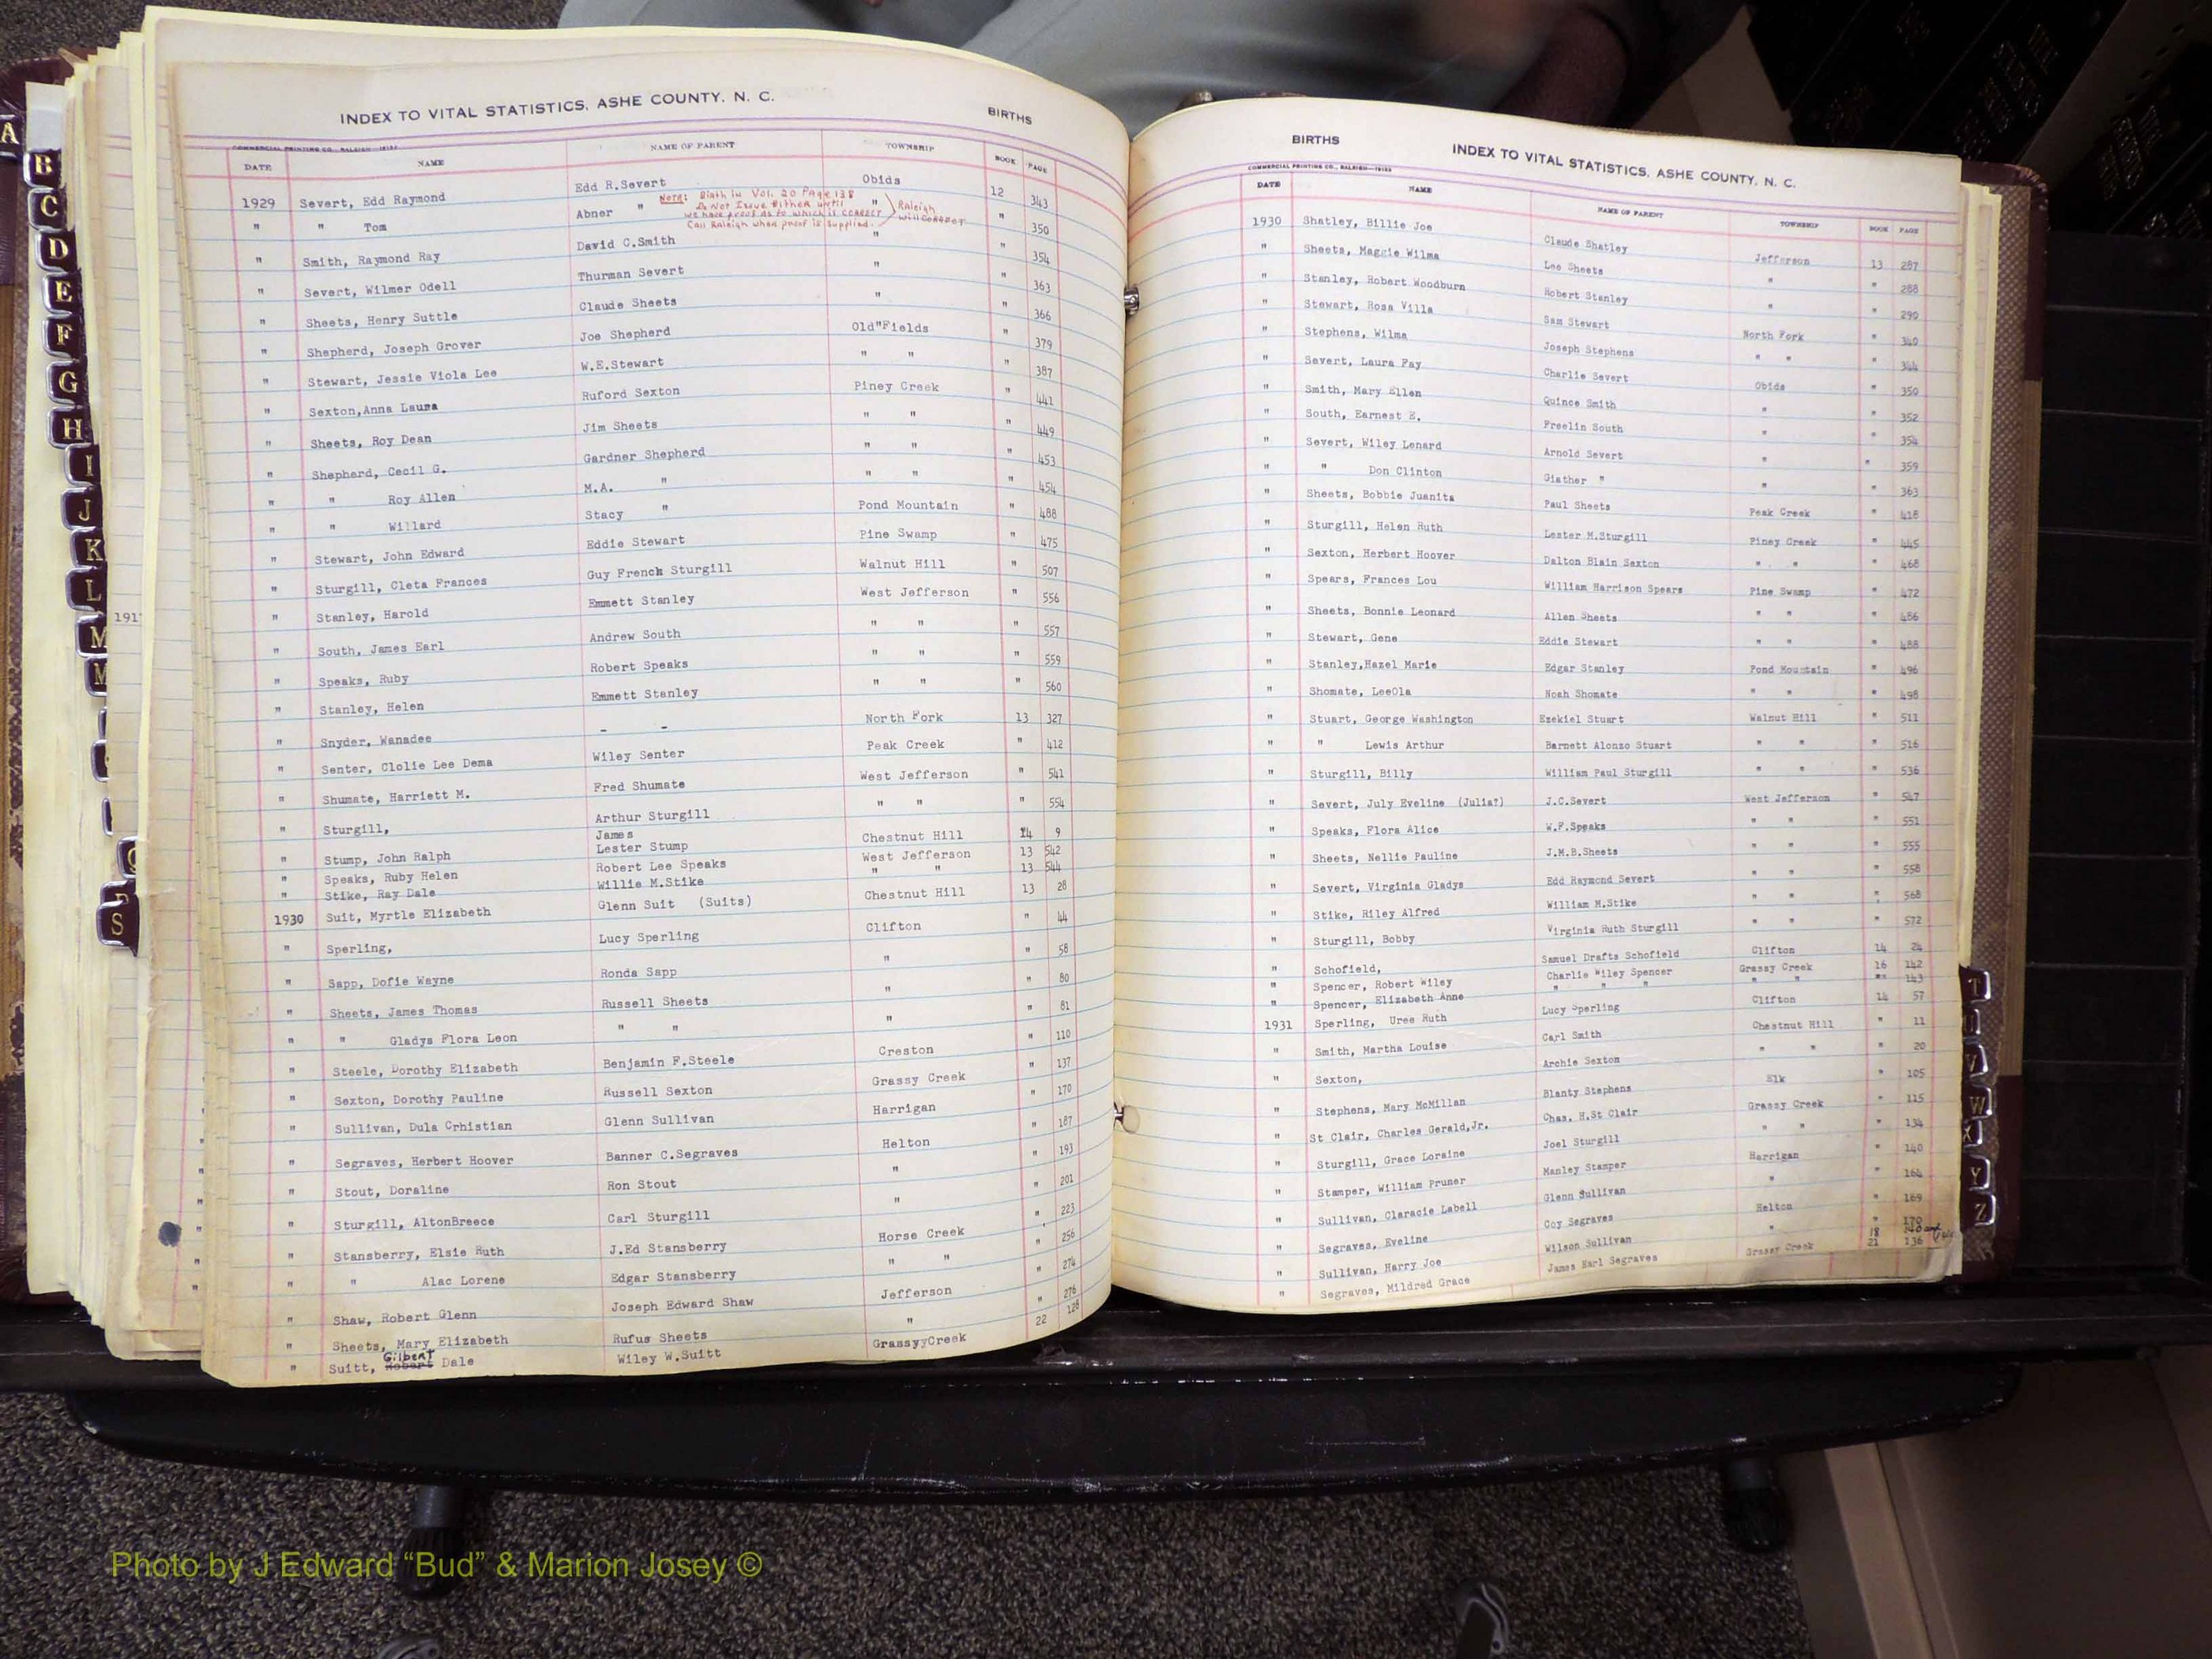 INDEX TO VITAL STATISTICS, ASHE COUNTY, N. C. BIRTHS
COMMERCIAL PRINTING CO., RALEIGH
DATE NAME NAME OF PARENT TOWNSHIP BOOK PAGE
1929 Severt, Edd Raymond Edd R.Severt Obids 12 343
Note: Birth in Vol. 20 Page 138
Do Not Issue Either until
we have proof as to which is correct
Call Raleigh when proof is supplied.
Raleigh
will correct
" " Tom Abner " " " 350
" Smith, Raymond Ray David C.Smith " " 354
" Severt, Wilmer Odell Thurman Severt " " 363
" Sheets, Henry Suttle Claude Sheets " " 366
" Shepherd, Joseph Grover Joe Shepherd Old"Fields " 379
" Stewart, Jessie Viola Lee W.E.Stewart " " " 387
" Sexton,Anna Laura Ruford Sexton Piney Creek " 441
" Sheets, Roy Dean Jim Sheets " " " 449
" Shepherd, Cecil G. Gardner Shepherd " " " 453
" " Roy Allen M.A. " " " " 454
" " Willard Stacy " Pond Mountain " 488
" Stewart, John Edward Eddie Stewart Pine Swamp " 475
" Sturgill, Cleta Frances Guy French Sturgill Walnut Hill " 507
" Stanley, Harold Emmett Stanley West Jefferson " 556
" South, James Earl Andrew South " " " 557
" Speaks, Ruby Robert Speaks " " " 559
" Stanley, Helen Emmett Stanley " " " 560
" Snyder, Wanadee - - North Fork 13 327
" Senter, Clolie Lee Dema Wiley Senter Peak Creek " 412
" Shumate, Harriett M. Fred Shumate West Jefferson " 541
" Sturgill, Arthur Sturgill " " " 554
" Stump, John Ralph James Lester Stump Chestnut Hill 14 9
" Speaks, Ruby Helen Robert Lee Speaks West Jefferson 13 542
" Stike, Ray Dale Willie M.Stike " " 13 544
1930 Suit, Myrtle Elizabeth Glenn Suit (Suits) Chestnut Hill 13 28
" Sperling, Lucy Sperling Clifton " 44
" Sapp, Dofie Wayne Ronda Sapp " " 58
" Sheets, James Thomas Russell Sheets " " 80
" " Gladys Flora Leon " " " " 81
" Steele, Dorothy Elizabeth Benjamin F.Steele Creston " 110
" Sexton, Dorothy Pauline Russell Sexton Grassy Creek " 137
" Sullivan, Dula Crhistian Glenn Sullivan Harrigan " 170
" Segraves, Herbert Hoover Banner C.Segraves Helton " 187
" Stout, Doraline Ron Stout " " 193
" Sturgill, AltonBreece Carl Sturgill " " 201
" Stansberry, Elsie Ruth J.Ed Stansberry Horse Creek " 223
" " Alac Lorene Edgar Stansberry " " " 256
" Shaw, Robert Glenn Joseph Edward Shaw Jefferson " 274
" Sheets, Mary Elizabeth Rufus Sheets " " 276
" Suitt, Gilbert Robert Dale Wiley W.Suitt GrassyyCreek 22 128
BIRTHS INDEX TO VITAL STATISTICS, ASHE COUNTY, N. C.
COMMERCIAL PRINTING CO., RALEIGH
DATE NAME NAME OF PARENT TOWNSHIP BOOK PAGE
1930 Shatley, Billie Joe Claude Shatley Jefferson 13 287
" Sheets, Maggie Wilma Lee Sheets " " 288
" Stanley, Robert Woodburn Robert Stanley " " 290
" Stewart, Rosa Villa Sam Stewart North Fork " 340
" Stephens, Wilma Joseph Stephens " " " 344
" Severt, Laura Fay Charlie Severt Obids " 350
" Smith, Mary Ellen Quince Smith " " 352
" South, Earnest E. Freelin South " " 354
" Severt, Wiley Lenard Arnold Severt " " 359
" " Don Clinton Giather " " " 363
" Sheets, Bobbie Juanita Paul Sheets Peak Creek " 418
" Sturgill, Helen Ruth Lester M.Sturgill Piney Creek " 445
" Sexton, Herbert Hoover Dalton Blain Sexton " " " 468
" Spears, Frances Lou William Harrison Spears Pine Swamp " 472
" Sheets, Bonnie Leonard Allen Sheets " " " 486
" Stewart, Gene Eddie Stewart " " " 488
" Stanley,Hazel Marie Edgar Stanley Pond Mountain " 496
" Shomate, LeeOla Noah Shomate " " " 498
" Stuart, George Washington Ezekiel Stuart Walnut Hill " 511
" " Lewis Arthur Barnett Alonzo Stuart " " " 516
" Sturgill, Billy William Paul Sturgill " " " 536
" Severt, July Eveline (Julia?) J.C.Severt West Jefferson " 547
" Speaks, Flora Alice W.F.Speaks " " " 551
" Sheets, Nellie Pauline J.M.B.Sheets " " " 555
" Severt, Virginia Gladys Edd Raymond Severt " " " 558
" Stike, Riley Alfred William M.Stike " " " 568
" Sturgill, Bobby Virginia Ruth Sturgill " " " 572
" Schofield, Samuel Drafts Schofield Clifton 14 24
" Spencer, Robert Wiley Charlie Wiley Spencer Grassy Creek 16 142
" Spencer, Elizabeth Anne " " " " " "" 143
1931 Sperling, Uree Ruth Lucy Sperling Clifton 14 57
" Smith, Martha Louise Carl Smith Chestnut Hill " 11
" Sexton, Archie Sexton " " " 20
" Stephens, Mary McMillan Blanty Stephens Elk " 105
" St Clair, Charles Gerald,Jr. Chas. H.St Clair Grassy Creek " 115
" Sturgill, Grace Loraine Joel Sturgill " " " 134
" Stamper, William Pruner Manley Stamper Harrigan " 140
" Sullivan, Claracie Labell Glenn Sullivan " " 164
" Segraves, Eveline Coy Segraves Helton " 169
" Sullivan, Harry Joe Wilson Sullivan " " 170
" Segraves, Mildred Grace James Earl Segraves Grassy Creek 21 136
A
B
C
D
E
F
G
H
I
J
K
L
M
S
191
T
V
W
X
Y
Z
Photo by J Edward “Bud” & Marion Josey ©